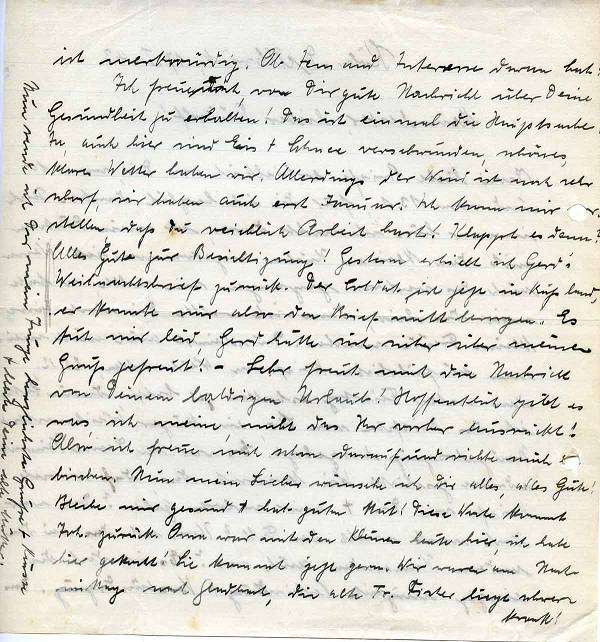 ist merkwürdig. Ob Jemand Interesse daran hat?
Ich freue mich, von Dir gute Nachricht über Deine
Gesundheit zu erhalten! Das ist einmal die Hauptsache.
Ja auch hier sind Eis + Schnee verschwunden, schönes,
klares Wetter haben wir. Allerdings der Wind ist noch sehr
wir haben auch erst Januar. Ich kann mir vor-
stellen daß du reichlich Arbeit hast! Klappt es denn?
Alles Gute zur Besichtigung! Gestern erhielt ich Gerd's
Weihnachtsbrief zurück. Der Soldat ist jetzt in Rußland,
er konnte nur aber den Brief nicht besorgen. Es
tut mir leid, Gerd hätte sich sicher über meinen
Gruß gefreut! – Sehr freut mich die Nachricht
von Deinem baldigen Urlaub! Hoffentlich gibt es
was ich meine nicht das Ihr vorher ausrückt!
Also ich freue mich schon darauf und richte mich
bischen. Nun mein Lieber wünsche ich Dir alles, alles Gute!
Bleibe mir gesund + hab guten Mut! Diese Woche kommt
zurück. Oma war mit den Kleinen heute hier, ich habe
hier gekocht! Sie kommt jetzt gern. Wir waren am Nach-
mittag nach Gladbach, die alte Fr. liegt schwer
krank!
Nun sende ich Dir mein Junge herzlichste Grüße + Küsse
+ bleibe Deine alte Mutter.